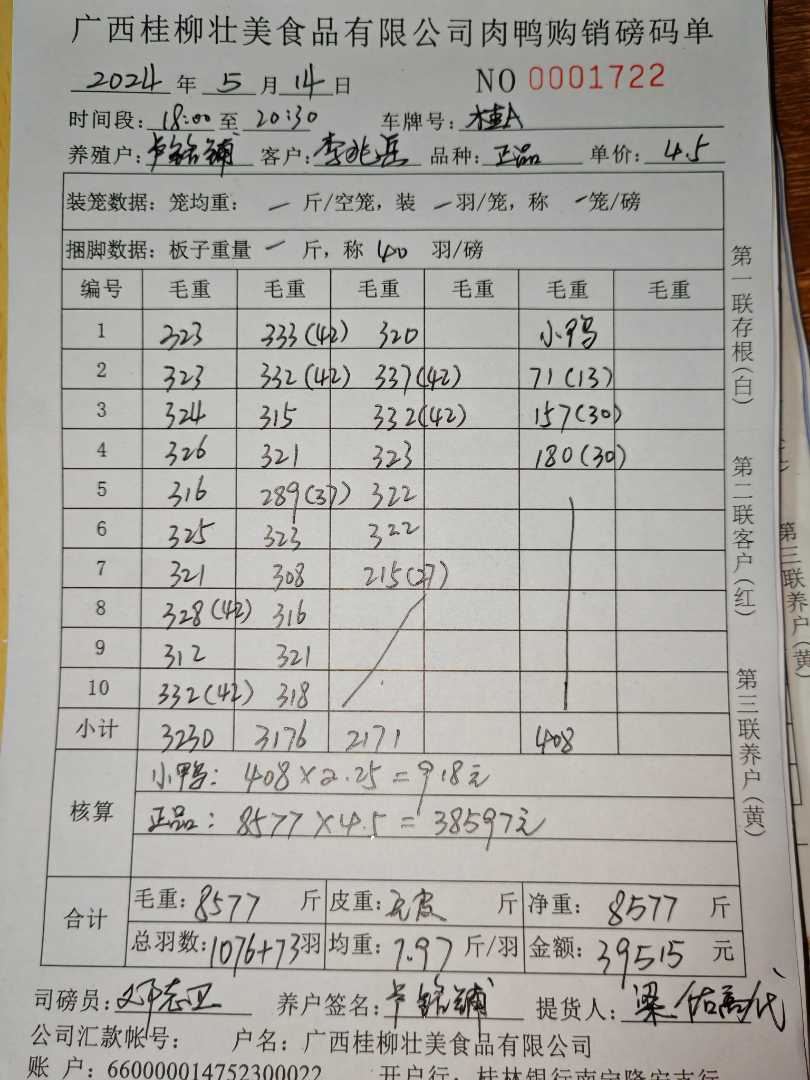 广西桂柳壮美食品有限公司肉鸭购销磅码单
2024 年 5 月 14 日 NO 0001722
时间段: 18:00 至 20:30 车牌号: 桂A
养殖户: 卢铭铺 客户: 李兆岳 品种: 正品 单价: 4.5
装笼数据: 笼均重: 一 斤/空笼, 装 一 羽/笼, 称 一 笼/磅
捆脚数据: 板子重量 一 斤, 称 40 羽/磅
编号 毛重 毛重 毛重 毛重 毛重 毛重
1 323 333(42) 320 小鸭
2 323 332(42) 337(42) 71(13)
3 324 315 332(42) 157(30)
4 326 321 323 180(30)
5 316 289(37) 322
6 325 323 322
7 321 308 215(27)
8 328(42) 316
9 312 321
10 332(42) 318
小计 3230 3176 2171 408
核算
小鸭: 408×2.25=918元
正品: 8577×4.5=38597元
合计
毛重: 8577 斤 皮重: 无皮 斤 净重: 8577 斤
总羽数: 1076+73羽 均重: 7.97 斤/羽 金额: 39515 元
司磅员: 邓志卫 养户签名: 卢铭铺 提货人: 梁
公司汇款帐号: 户名: 广西桂柳壮美食品有限公司
账 户: 660000014752300022 开户行: 桂林银行南宁隆安支行
第一联存根(白)
第二联客户(红)
第三联养户(黄)
第三联养户(黄)